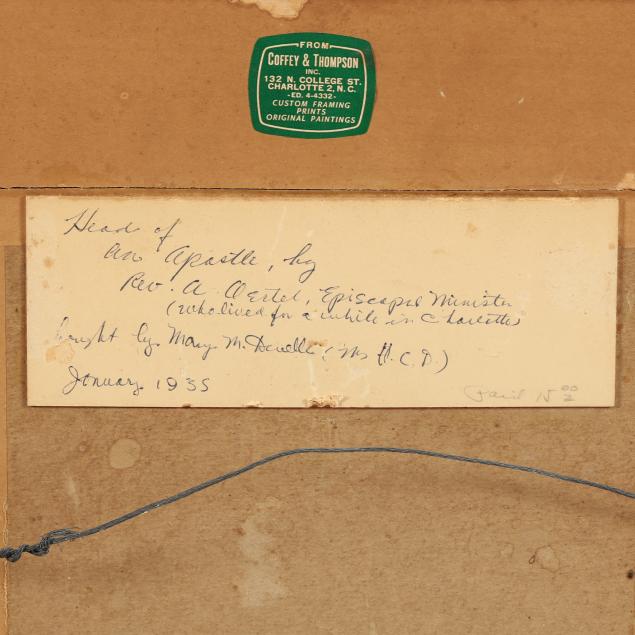 FROM
COFFEY & THOMPSON
INC.
132 N. COLLEGE ST.
CHARLOTTE 2, N.C.
-ED. 4-4332-
CUSTOM FRAMING
PRINTS
ORIGINAL PAINTINGS
Head of
an Apostle, by
Rev. A Oertel, Episcopal Minister
(who lived for a while in Charlotte)
bought by Mary M. (Mrs H.C.D.)
January 1935
Paid 15 00